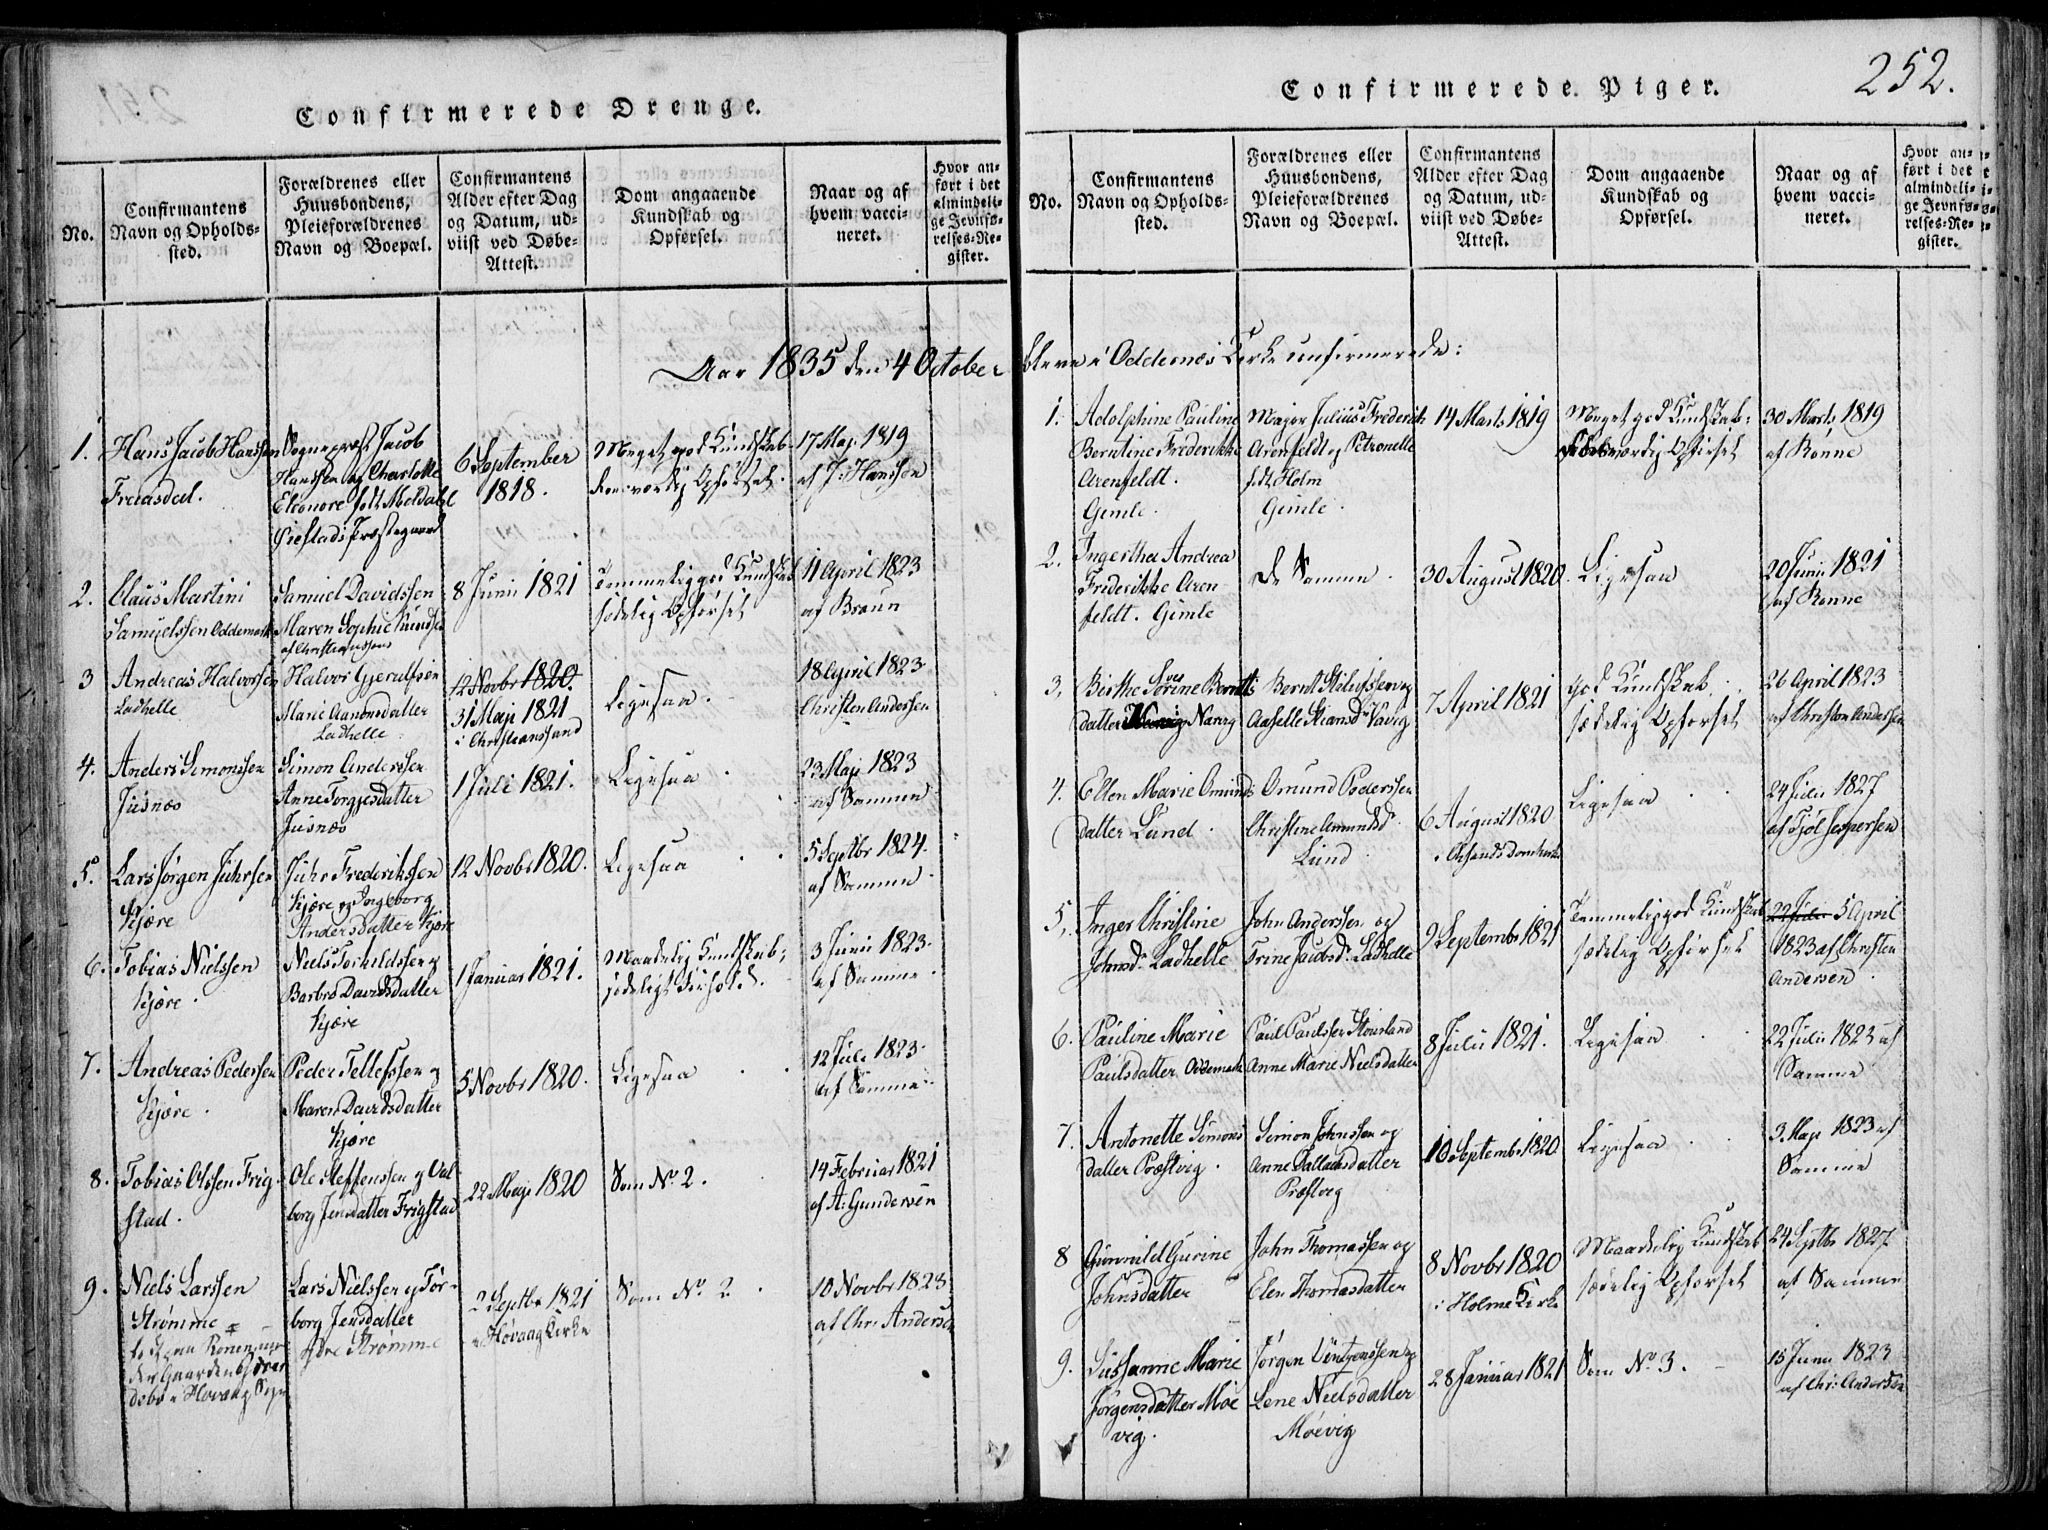 Confirmerede Drenge.
No.
Confirmantens
Navn og Opholds-
sted.
Forældrenes eller
Huusbondens,
Pleieforældrenes
Navn og Boepæl.
Confirmantens
Alder efter Dag
og Datum, ud-
viist ved Døbe-
Attest.
Dom angaaende
Kundskab og
Opførsel.
Naar og af
hvem vacci-
neret.
Hvor an-
ført i det
almindeli-
ge Jevnfø-
relses-Re-
gister.
Aar 1835 den 4 October
1.
Hans Jacob Hanssen
Sognepræst Jacob
Hanssen og Charlotte
Eleonore født Meldahl
6 September
1818.
Meget god Kundskab
17 Maji 1819
af J: Hanssen
2.
Claus Martini
Samuelssen Oddemark
Samuel Davidssen
Maren Sophie Knuds
8 Junii 1821
Temmelig god Kundskab
sædelig Opførsel
11 April 1823
af Braun
3
Andreas Halvorsen
Ladhelle
Halvor Gjerulfsen
Marie Aanensdatter
Ladhelle
12 Novbr 1820.
31 Maji 1821
i Christianssand
Ligesaa.
18 April 1823
Christen Anderssen
4.
Anders Simonssen
Jusnæs
Simon Anderssen
Anne Torgjesdatter
Jusnæs
1 Juli 1821.
Ligesaa
23 Maji 1823
af Samme
5.
Lars Jørgen Juhrsen
Kjære
Juhr Frederikssen
Kjære og Ingeborg
Andersdatter Kjære
12 Novbr 1820.
Ligesaa
5 Septbr 1824.
af Samme
6.
Tobias Nielssen
Kjære.
Niels Torkildssen og
Barbro Davidsdatter
Kjære
1 Januar 1821.
Maadelig Kundskab;
sædeligt Forhold.
3 Junii 1823.
af Samme
7.
Andreas Pederssen
Kjære.
Peder Tellefssen og
Maren Davidsdatter
Kjære
5 Novbr 1820.
Ligesaa
12 Juli 1823.
af Samme
8.
Tobias Olssen Frig-
stad.
Ole Steffenssen og Val
borg Jensdatter Frigstad
22 Maji 1820
Som No 2.
14 Februar 1821
af A: Gundersen
9.
Niels Larssen
Strømme
Lars Nielssen og Tor-
borg Jensdatter
Strømme
2 Septbr 1821
i Høvaag Kirke
Som No 2
10 Novbr 1823
af Chr: Andersen
252.
Confirmerede Piger.
No.
Confirmantens
Navn og Opholds-
sted.
Forældrenes eller
Huusbondens,
Pleieforældrenes
Navn og Boepæl.
Confirmantens
Alder efter Dag
og Datum, ud-
viist ved Døbe-
Attest.
Dom angaaende
Kundskab og
Opførsel.
Naar og af
hvem vacci-
neret.
Hvor an-
ført i det
almindeli-
ge Jevnfø-
relses-Re-
gister.
bleve i Oddernæs Kirke confirmerede:
1.
Adolphine Pauline
Berntine Frederikke
Arenfeldt.
Gimle.
Major Julius Frederik
Arenfeldt og Petronelle
fdt. Holm
Gimle.
14 Marts 1819
Meget god Kundskab
værdig Opførsel
30 Marts 1819
af Rønne
2.
Ingertha Andrea
Frederikke Aren
feldt. Gimle
de Samme.
30 August 1820.
Ligesaa
20 Junii 1821
af Rønne
3.
Birthe Sørine Bernts
datter
Bernt
7 April 1821
god Kundskab
sædelig Opførsel
26 April 1823
af Christen Andersen
4.
Ellen Marie Omunds
datter Lund.
Omund Pederssen
Christine
Lund
6 August 1820
24 Julii 1827
Ligesaa
5.
Inger Christine
Johnsd. Ladhelle
John Anderssen og
Trine Jacobsd. Ladhelle
9 Septembr 1821
Temmelig god Kundskab
sædelig Opførsel
5 April
1823 af Christen
Andersen
6.
Pauline Marie
Paulsdatter Oddemark
Paul Paulssen
Anne Marie Nielsdatter
8 Julii 1821.
Ligesaa
22 Julii 1823 af
Samme
7.
Antonette Simons
datter Præstvig.
Simon Johnssen og
Anne
Præstvig
10 Septembr 1820
Ligesaa
3 Maji 1823 af
Samme
8
Gunnild Gurine
Johnsdatter
John Thomassen og
Elen Thomasdatter
8 Novbr 1820
i Holme Kirke
Maadelig Kundskab
sædelig Opførsel
24 Septbr 1827
af Samme
9.
Sussanne Marie
Jørgensdatter Møe
vig.
Jørgen Ventzenssen og
Lene Nielsdatter
Møevig
28 Januar 1821
Som No 3.
15 Junii 1823
af Chr: Andersen